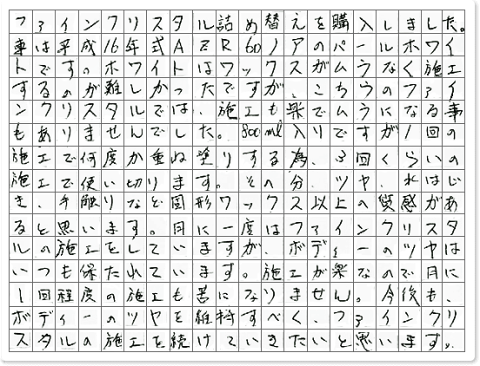 ファインクリスタル詰め替えを購入しました。
車は平成16年式AZR60ノアのパールホワイ
トです。ホワイトはワックスがムラなく施工
するのが難しかったですが、こちらのファイ
ンクリスタルでは、施工も楽でムラになる事
もありませんでした。300ml入りですが1回の
施工で何度か重ね塗りする為、3回くらいの
施工で使い切ります。その分、ツヤ、水はじ
き、手触りなど固形ワックス以上の質感があ
ると思います。月に一度はファインクリスタ
ルの施工をしていますが、ボディーのツヤは
いつも保たれています。施工が楽なので月に
1回程度の施工も苦になりません。今後も、
ボディーのツヤを維持すべく、ファインクリ
スタルの施工を続けていきたいと思います。